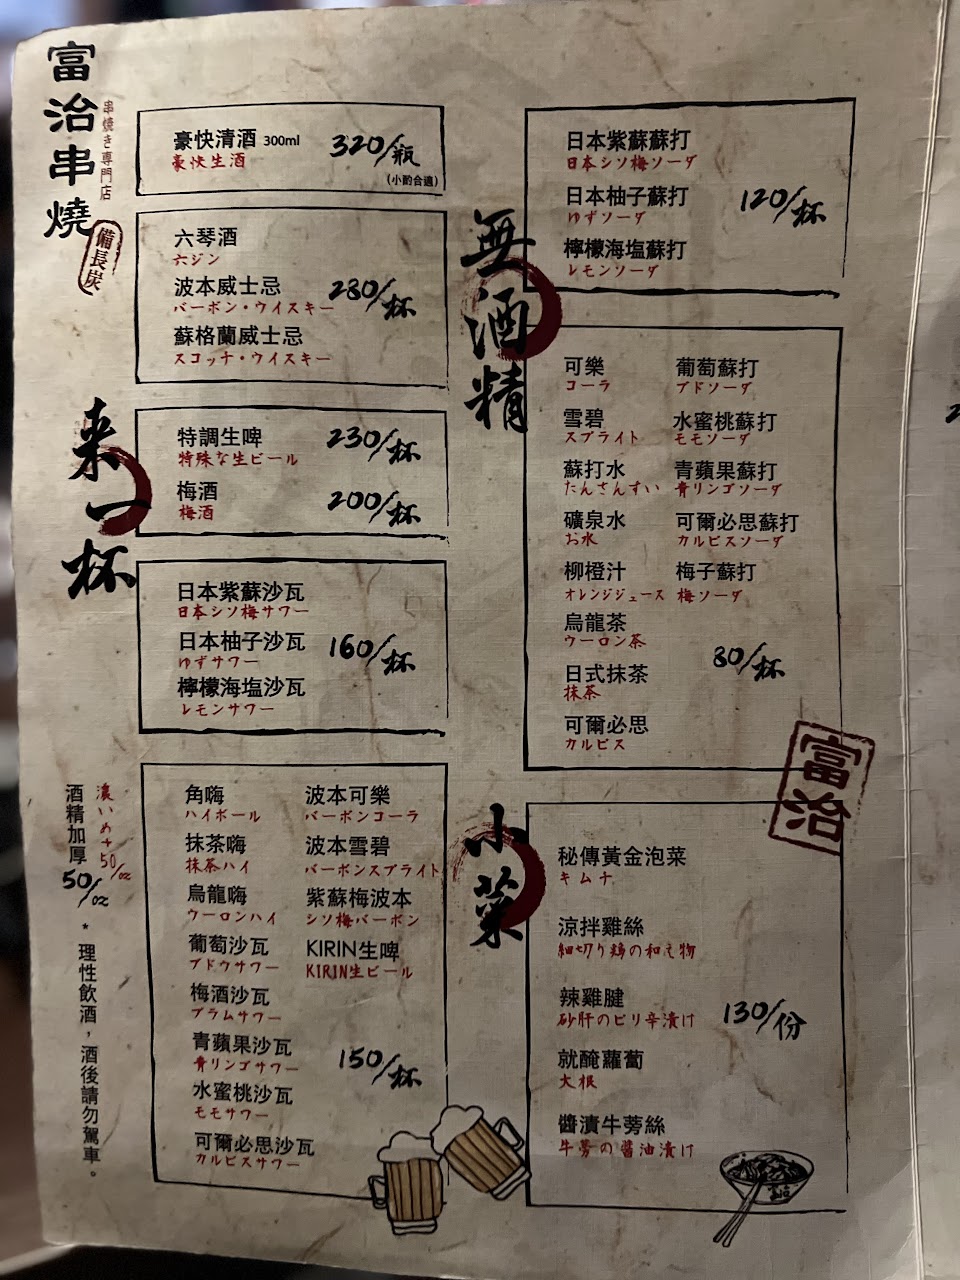 富治串燒
串焼き専門店
備長炭
来一杯
豪快清酒 300ml 320/瓶
豪快生酒
(小酌合適)
六琴酒
六ジン
波本威士忌 280/杯
バーボン・ウイスキー
蘇格蘭威士忌
スコッチ・ウイスキー
特調生啤 230/杯
特殊な生ビール
梅酒 200/杯
梅酒
日本紫蘇沙瓦
日本シソ梅サワー
日本柚子沙瓦 160/杯
ゆずサワー
檸檬海塩沙瓦
レモンサワー
角嗨 波本可樂
ハイボール バーボンコーラ
抹茶嗨 波本雪碧
抹茶ハイ バーボンスプライト
烏龍嗨 紫蘇梅波本
ウーロンハイ シソ梅バーボン
葡萄沙瓦 KIRIN生啤
ブドウサワー KIRIN生ビール
梅酒沙瓦
プラムサワー
青蘋果沙瓦
青リンゴサワー
150/杯
水蜜桃沙瓦
モモサワー
可爾必思沙瓦
カルピスサワー
濃いめ+50/oz
酒精加厚 50/oz
*理性飲酒，酒後請勿駕車。
無酒精
日本紫蘇蘇打
日本シソ梅ソーダ
日本柚子蘇打 120/杯
ゆずソーダ
檸檬海塩蘇打
レモンソーダ
可樂 葡萄蘇打
コーラ ブドソーダ
雪碧 水蜜桃蘇打
スプライト モモソーダ
蘇打水 青蘋果蘇打
たんさんすい 青リンゴソーダ
礦泉水 可爾必思蘇打
お水 カルピスソーダ
柳橙汁 梅子蘇打
オレンジジュース 梅ソーダ
烏龍茶
ウーロン茶
80/杯
日式抹茶
抹茶
可爾必思
カルピス
富治
小菜
秘傳黃金泡菜
キムチ
涼拌雞絲
細切り鶏の和え物
辣雞腱
砂肝のピリ辛漬け
130/份
就醃蘿蔔
大根
醬漬牛蒡絲
牛蒡の醤油漬け